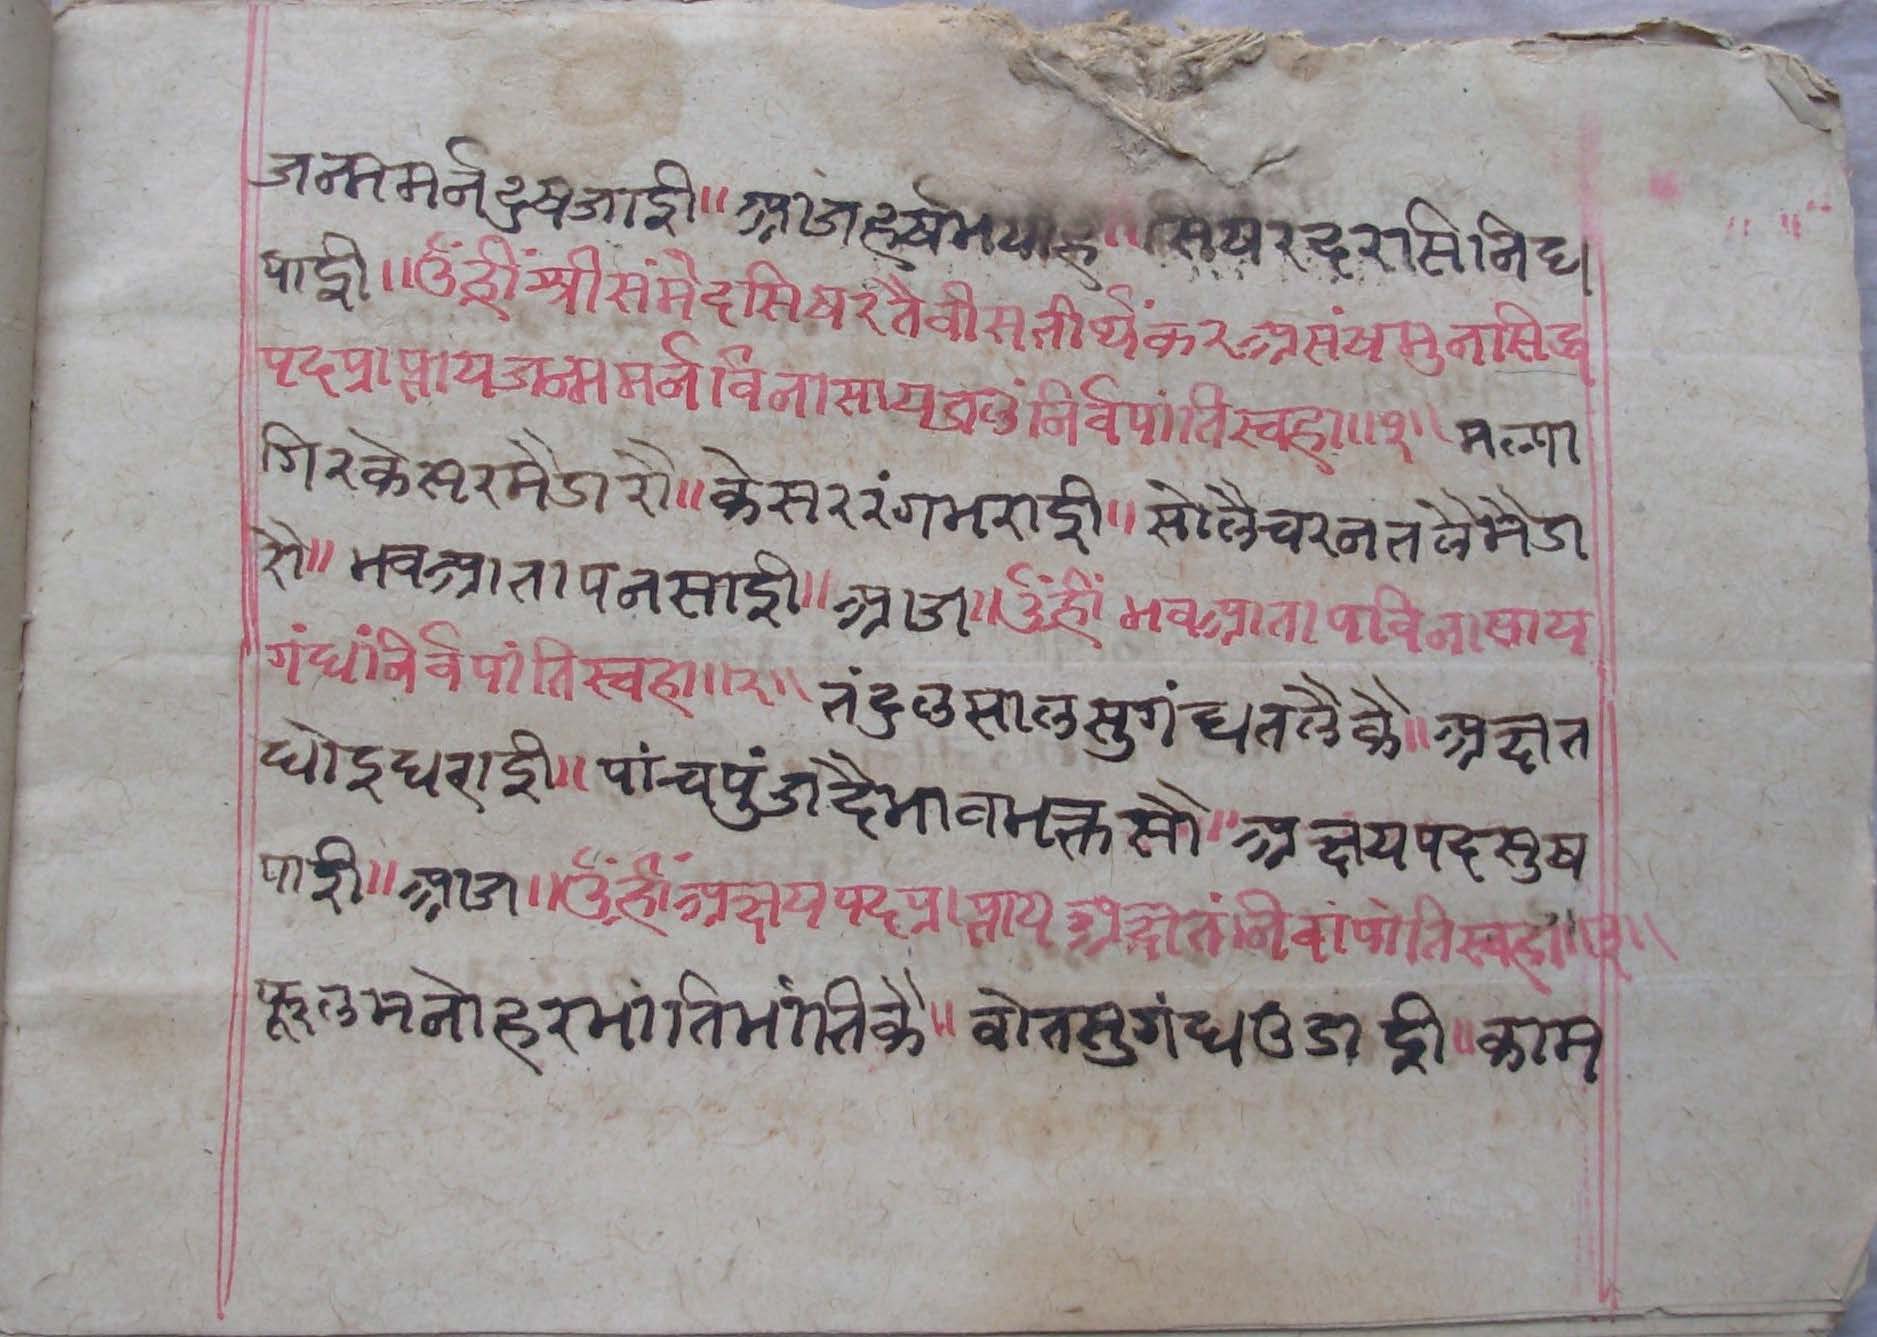 जन्ममर्नदुषजाई॥ आजहर्षभयोह॥ सिषरदरासिनिधा
पाई॥ उँह्रींश्रीसंमेदसिषरतैवीसतीर्थंकरअसंषमुनासिद्ध
पदप्राप्तायजन्ममर्नविनासायजलंनिर्वपांतिस्वहा॥१॥ मल्या
गिरकेसरमैडारौ॥ केसररंगभराई॥ सोलैचरनतलेमैडा
रो॥ भवआतापनसाई॥ आज॥ उँह्रीं भवआतापविनासाय
गंधांनिर्वपांतिस्वहा॥२॥ तंदुलसालसुगंधतलैकै॥ अक्षत
धोइधराई॥ पांचपुंजदैभावभक्तसौ॥ अक्षयपदसुष
पाई॥ आज॥ उँह्रींअक्षयपदप्राप्ताय अक्षतंनिर्वापांतिस्वहा॥३॥
फूलमनोहरभांतिभांतिकै॥ वोतसुगंधउडाई॥ काम